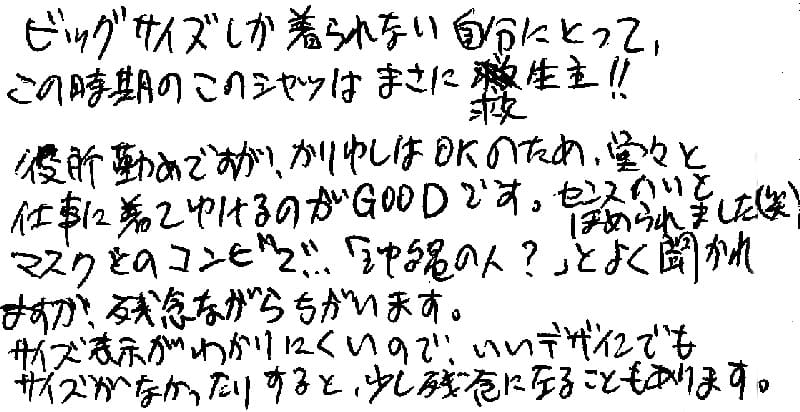 ビッグサイズしか着られない自分にとって、
この時期のこのシャツはまさに救生主!!
役所勤めですが、かりゆしはOKのため、堂々と
仕事に着てゆけるのがGOODです。センスわいと
ほめられました(笑)
マスクとのコンビで…「沖縄の人?」とよく聞かれ
ますが、残念ながらちがいます。
サイズ表示がわかりにくいので、いいデザインでも
サイズがなかったりすると、少し残念になることもあります。